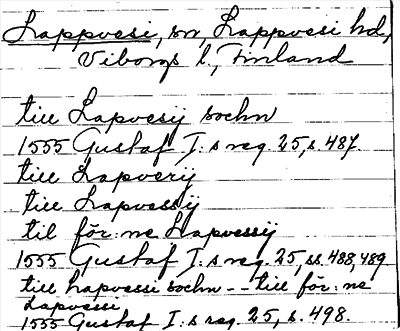 Lappvesi, sn, Lappvesi hd,
Viborgs l., Finland
till Lapvesij sochn
1555 Gustaf I:s reg. 25, s. 487.
till Lapverij
till Lapvessij
til för:ne Lapvessij
1555 Gustaf I:s reg. 25, ss. 488, 489
till hapvessi sochn -- till för:ne
Lapvessi
1555 Gustaf I:s reg. 25, s. 498.